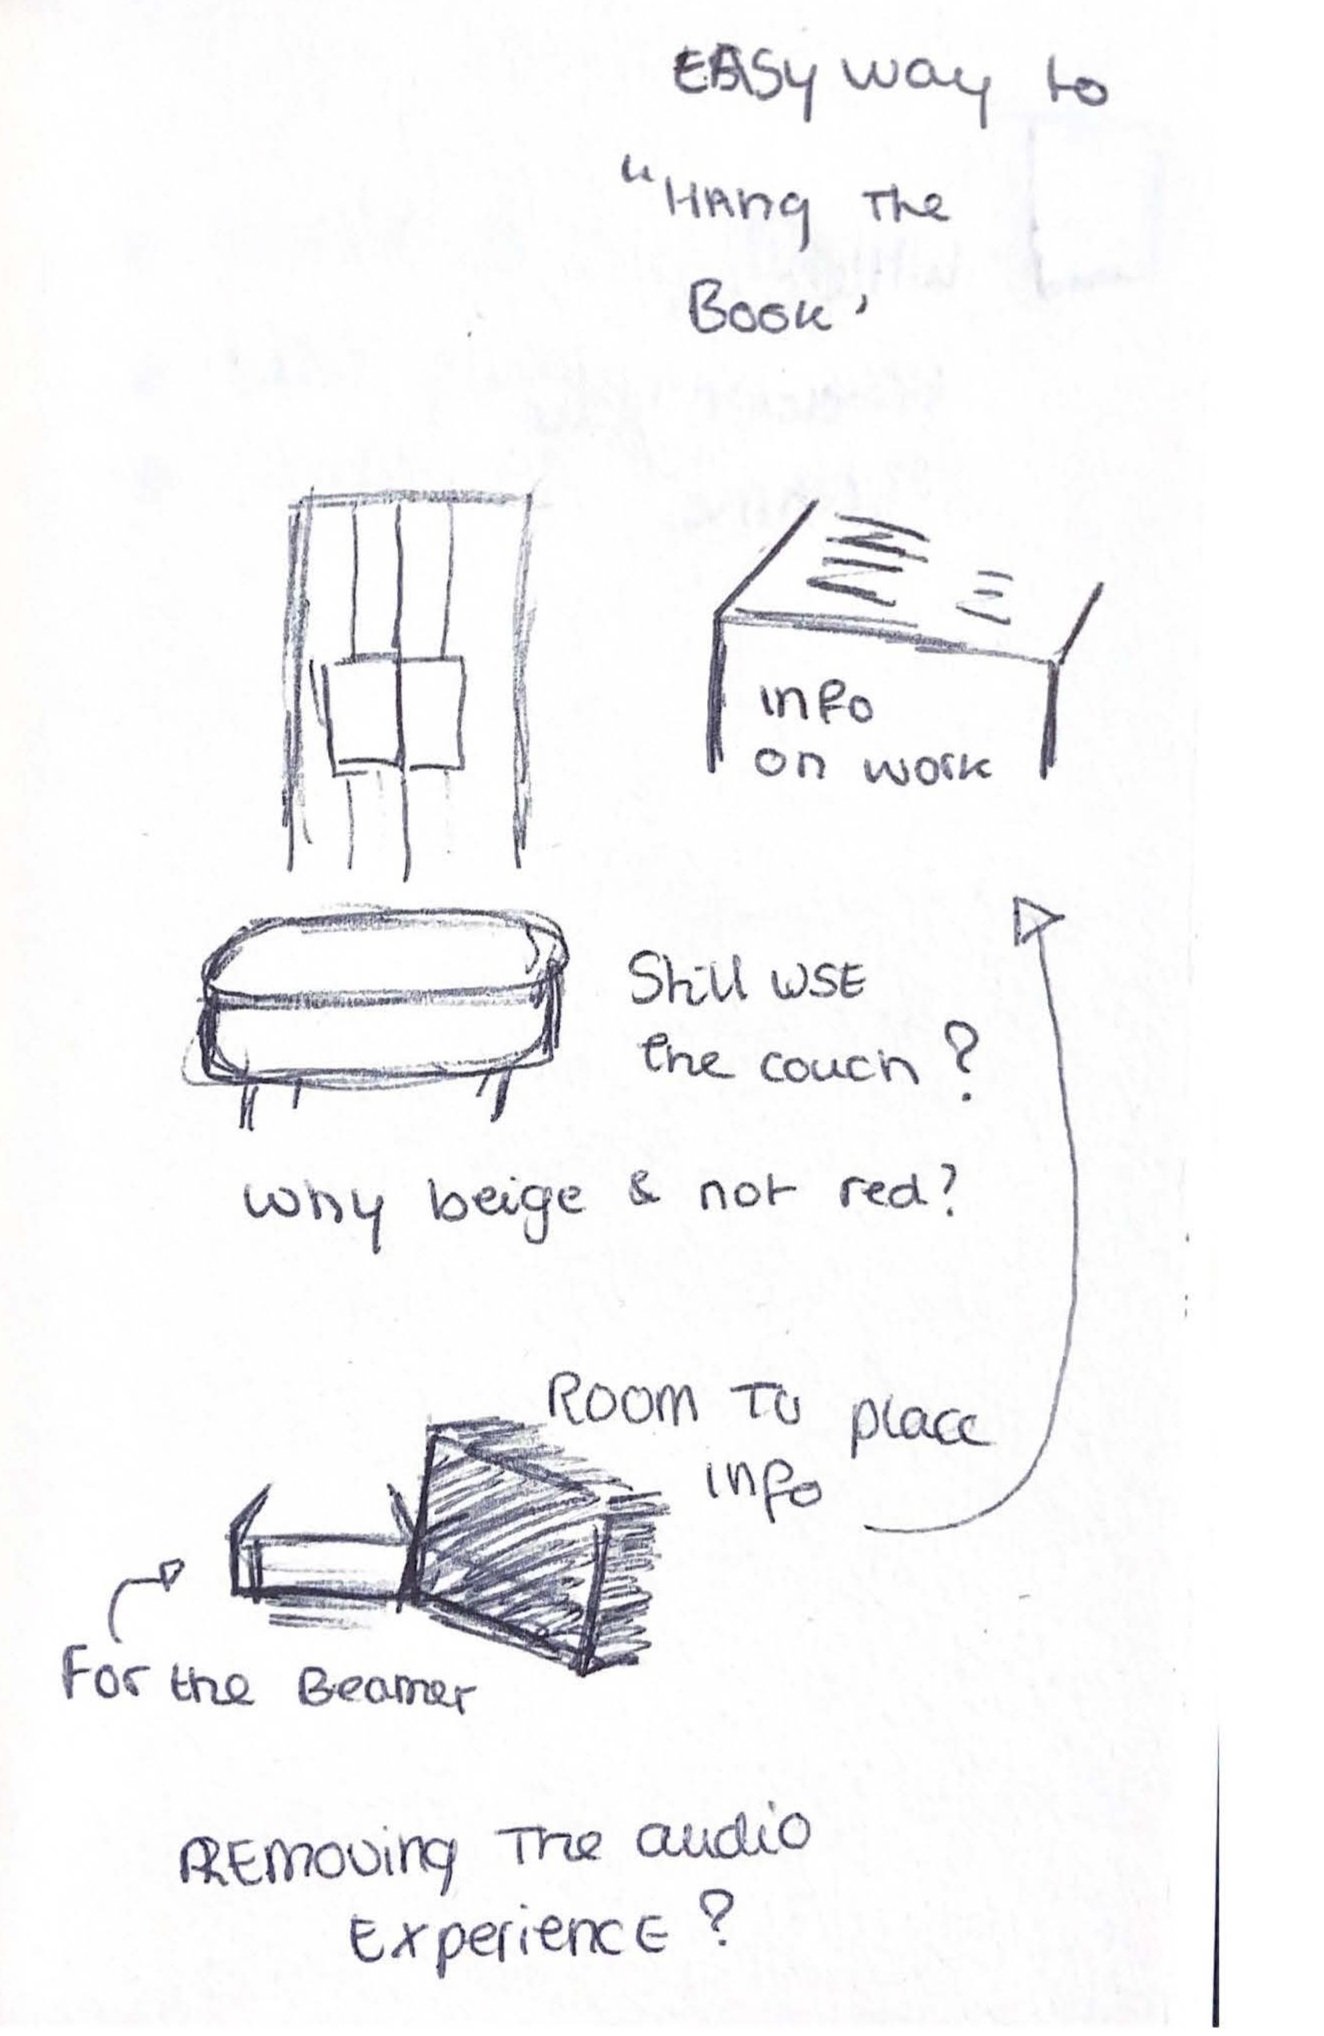 EASy way to
"HAng The
Book'
info
on work
Still USE
the couch ?
why beige & not red?
ROOM TO place
info
For the Beamer
REMoving The audio
ExperiencE ?